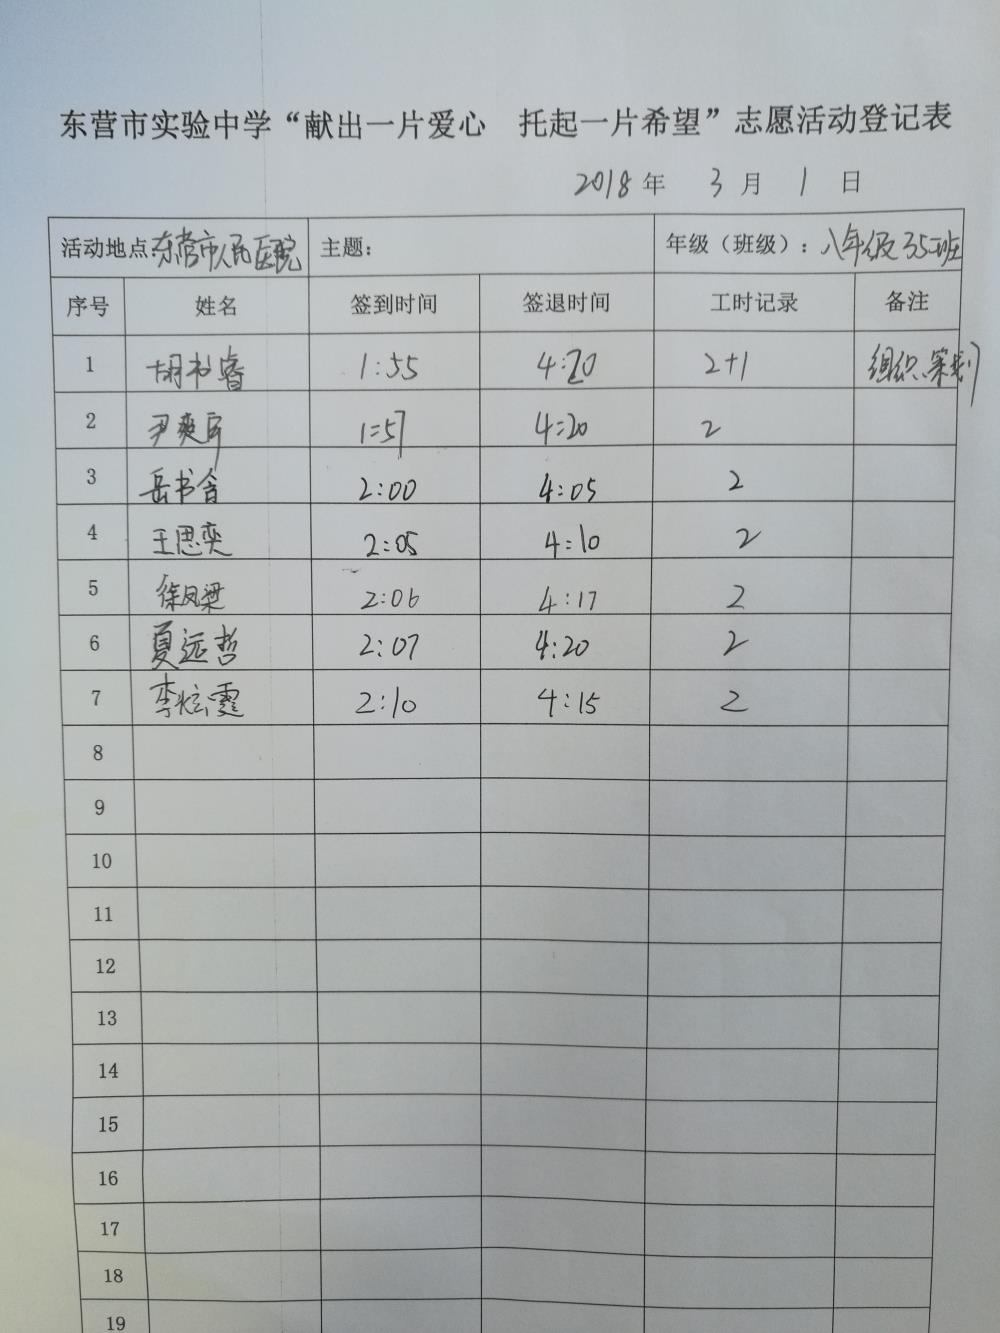 东营市实验中学“献出一片爱心 托起一片希望”志愿活动登记表
2018年 3月 1日
活动地点:东营市人民医院 主题: 年级（班级）：八年级35班
序号 姓名 签到时间 签退时间 工时记录 备注
1 胡书睿 1:55 4:20 2+1 组织、策划
2 尹爽 1:57 4:20 2
3 岳书含 2:00 4:05 2
4 王思奕 2:05 4:10 2
5 徐凤梁 2:06 4:17 2
6 夏远哲 2:07 4:20 2
7 李炫霆 2:10 4:15 2
8
9
10
11
12
13
14
15
16
17
18
19